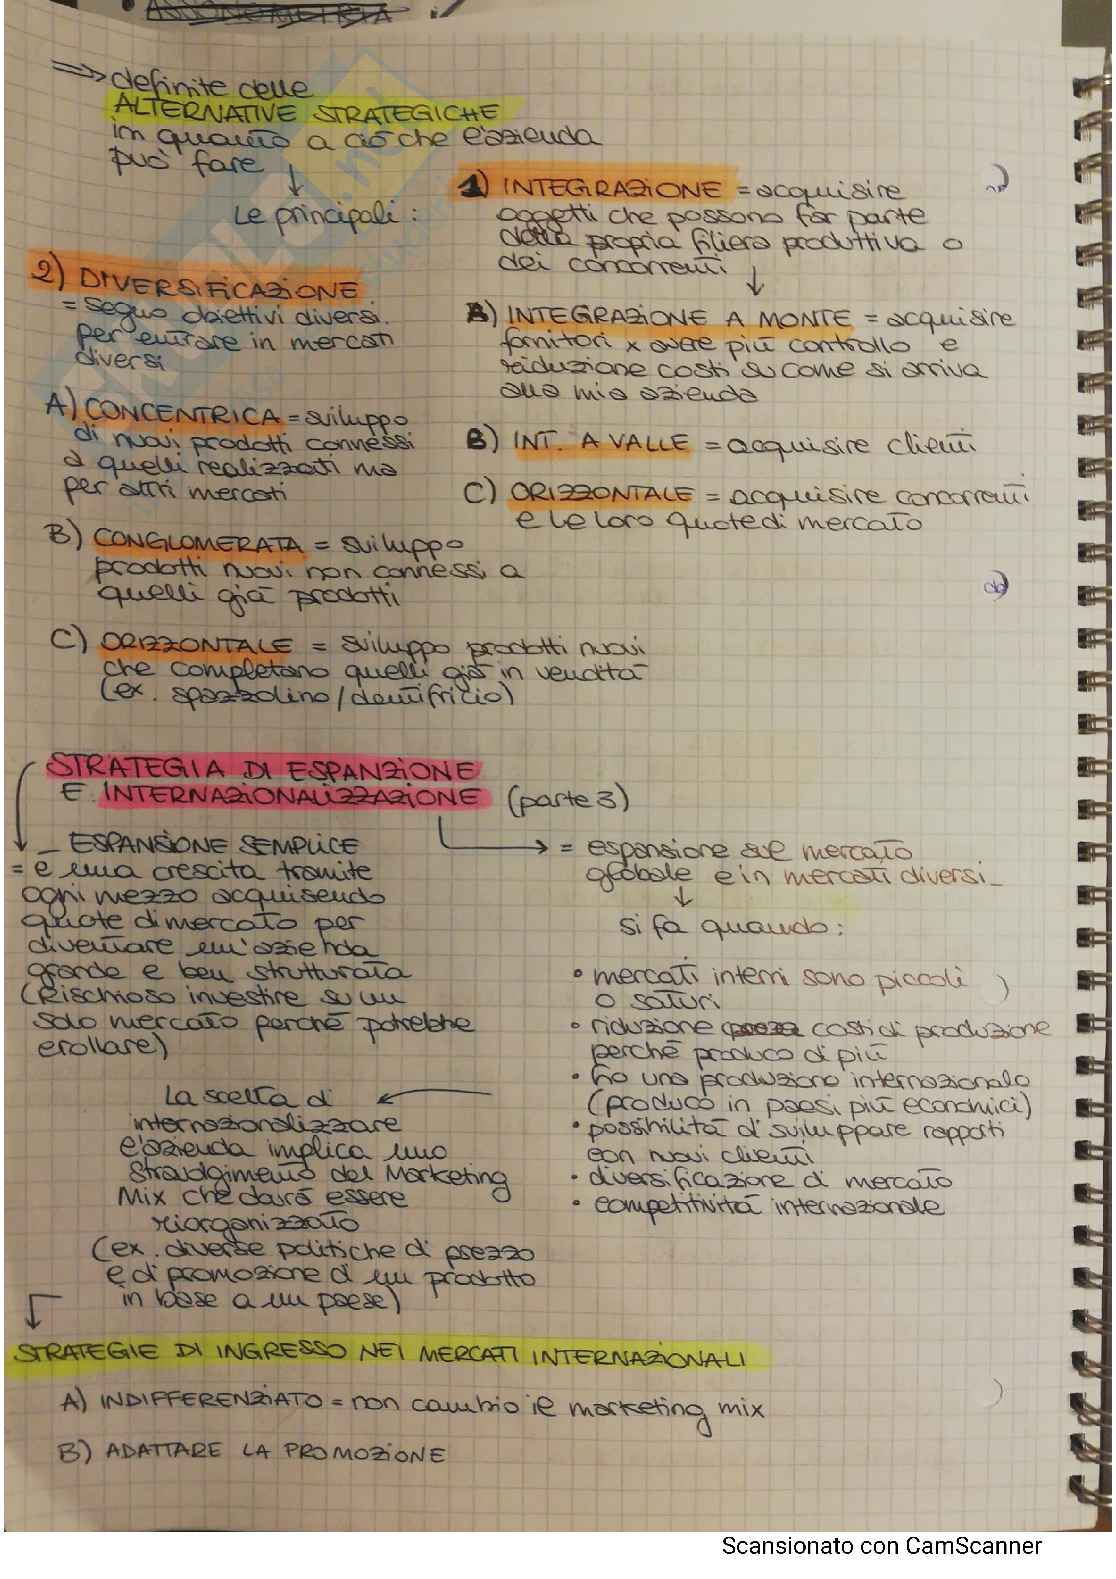 => definite delle
ALTERNATIVE STRATEGICHE
in quanto a ciò che l'azienda
può fare
↓
Le principali:
1) INTEGRAZIONE = acquisire
oggetti che possono far parte
della propria filiera produttiva o
dei concorrenti
↓
A) INTEGRAZIONE A MONTE = acquisire
fornitori x avere più controllo e
riduzione costi su come si arriva
alla mia azienda
B) INT. A VALLE = acquisire clienti
C) ORIZZONTALE = acquisire concorrenti
e le loro quote di mercato
2) DIVERSIFICAZIONE
= seguo obiettivi diversi
per entrare in mercati
diversi
A) CONCENTRICA = sviluppo
di nuovi prodotti connessi
a quelli realizzati ma
per altri mercati
B) CONGLOMERATA = sviluppo
prodotti nuovi non connessi a
quelli già prodotti
C) ORIZZONTALE = sviluppo prodotti nuovi
che completano quelli già in vendita
(ex. spazzolino/dentifricio)
STRATEGIA DI ESPANZIONE
E INTERNAZIONALIZZAZIONE (parte 3)
- ESPANSIONE SEMPLICE
= è una crescita tramite
ogni mezzo acquisendo
quote di mercato per
diventare un'azienda
grande e ben strutturata
(Rischioso investire su un
solo mercato perché potrebbe
crollare)
→ = espansione sul mercato
globale e in mercati diversi
↓
si fa quando:
• mercati interni sono piccoli
o saturi
• riduzione costi di produzione
perché produco di più
• ho una produzione internazionale
(produco in paesi più economici)
• possibilità di sviluppare rapporti
con nuovi clienti
• diversificazione di mercato
• competitività internazionale
La scelta di
internazionalizzare
l'azienda implica uno
stravolgimento del Marketing
Mix che dovrà essere
riorganizzato
(ex. diverse politiche di prezzo
e di promozione di un prodotto
in base a un paese)
STRATEGIE DI INGRESSO NEI MERCATI INTERNAZIONALI
A) INDIFFERENZIATO = non cambio il marketing mix
B) ADATTARE LA PROMOZIONE
Scansionato con CamScanner